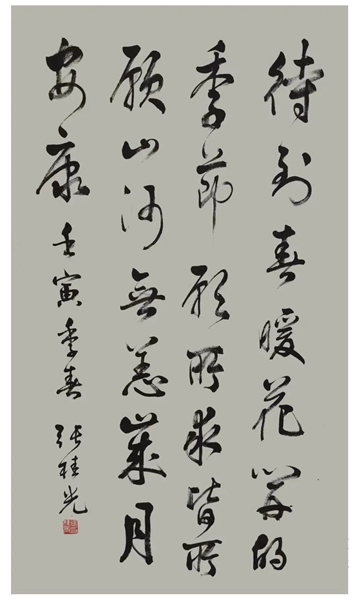 待到春暖花開的
季節願所求皆所
願山河無恙歲月
安康 壬寅季春 張桂光